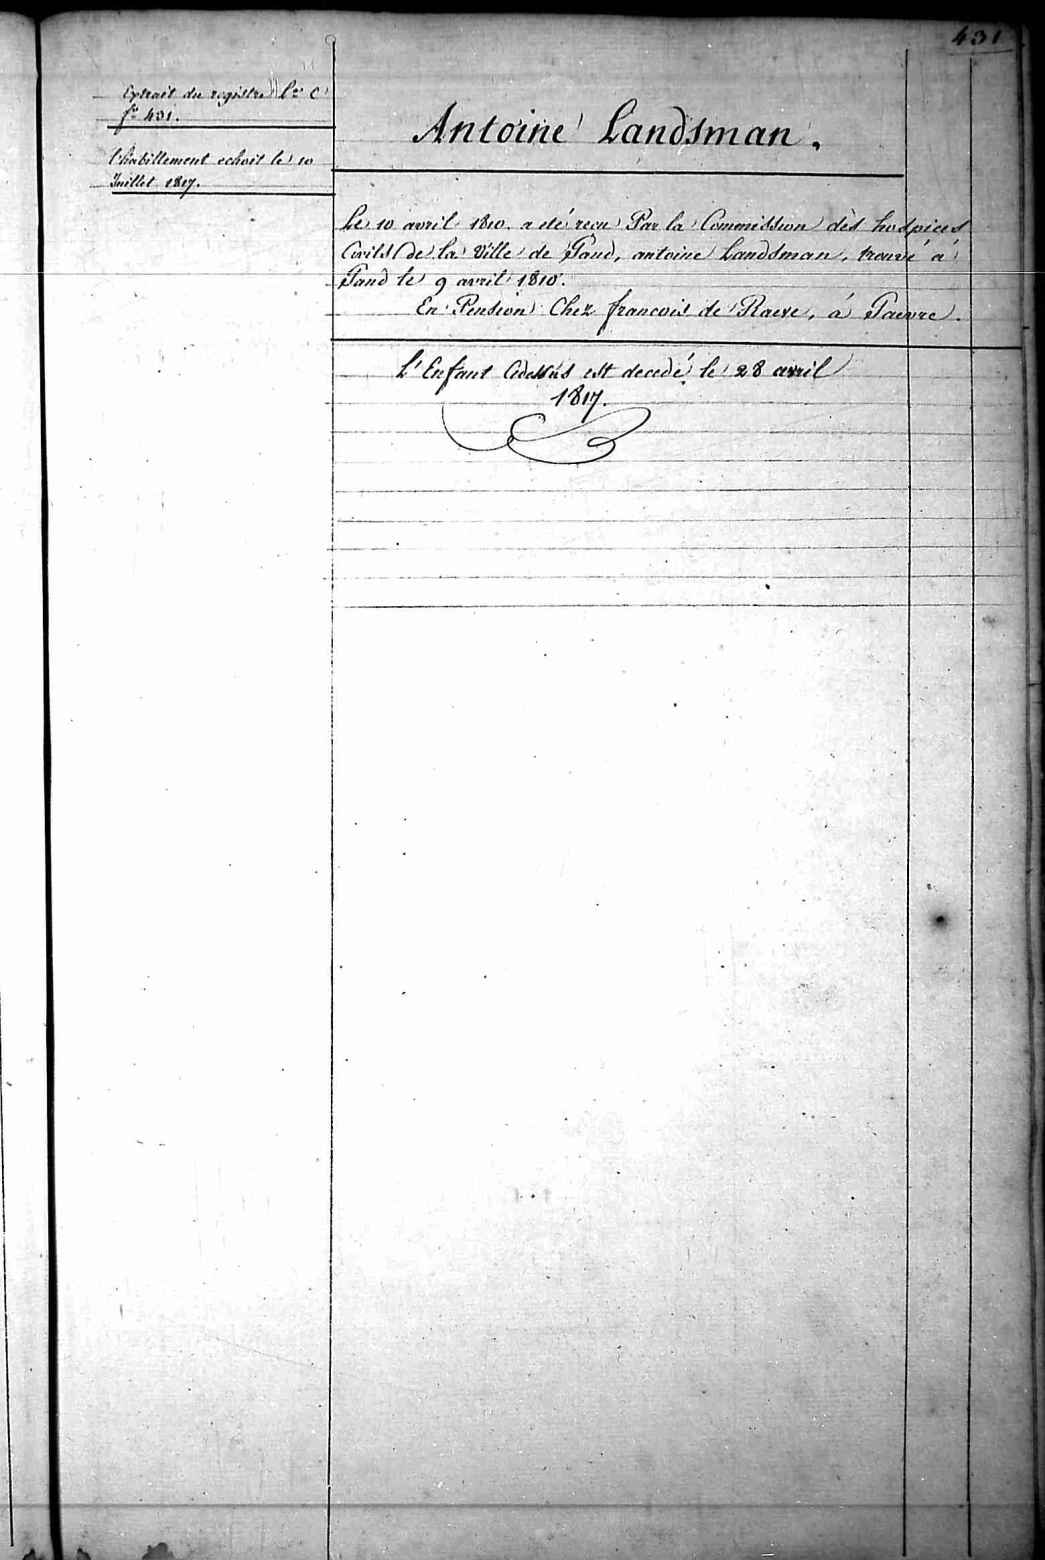 431
Extrait du registre Lr C
fo 431.
L'habillement echoit le 10
Juillet 1817.
Antoine Landsman.
Le 10 avril 1810. a eté recu Par la Commission des hospices
Civils de la Ville de Gand, antoine Landsman, trouvé á
Gand le 9 avril 1810.
En Pension Chez francois de Raeve, á
L'Enfant Cidessus est decedé le 28 avril
1817.